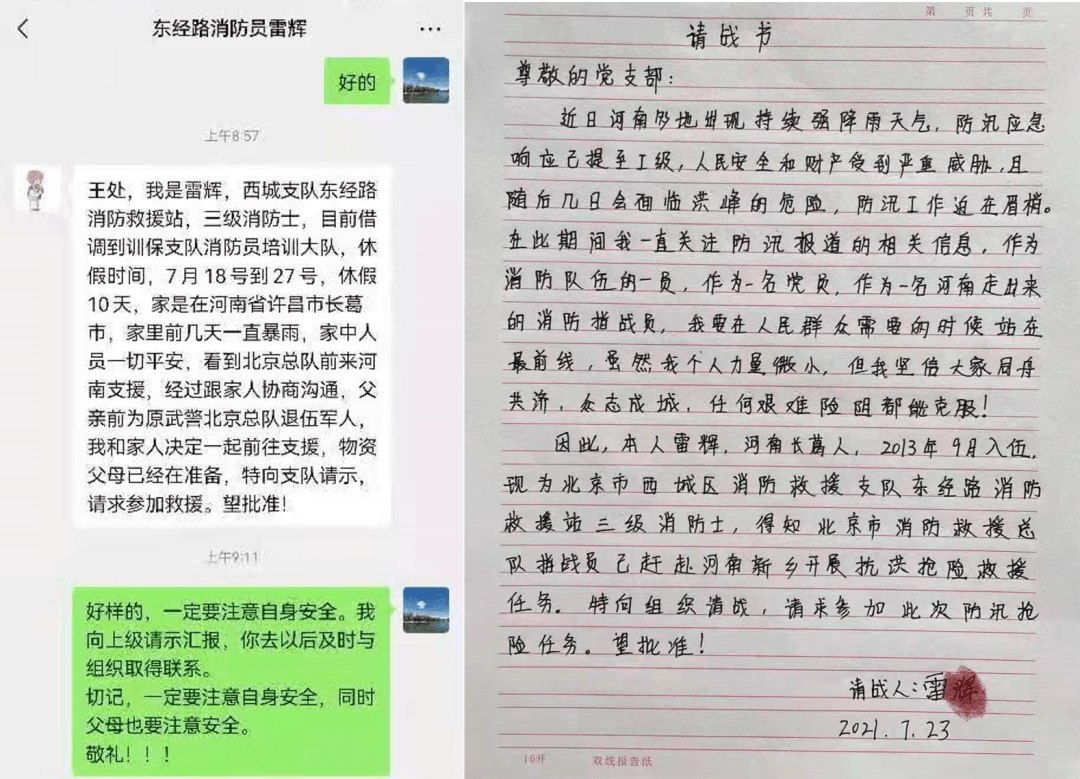 东经路消防员雷辉
好的
上午8:57
王处，我是雷辉，西城支队东经路
消防救援站，三级消防士，目前借
调到训保支队消防员培训大队，休
假时间，7月18号到27号，休假
10天，家是在河南省许昌市长葛
市，家里前几天一直暴雨，家中人
员一切平安，看到北京总队前来河
南支援，经过跟家人协商沟通，父
亲前为原武警北京总队退伍军人，
我和家人决定一起前往支援，物资
父母已经在准备，特向支队请示，
请求参加救援。望批准！
上午9:11
好样的，一定要注意自身安全。我
向上级请示汇报，你去以后及时与
组织取得联系。
切记，一定要注意自身安全，同时
父母也要注意安全。
敬礼！！！
第 页共 页
请战书
尊敬的党支部：
近日河南多地出现持续强降雨天气，防汛应急
响应已提至I级，人民安全和财产受到严重威胁，且
随后几日会面临洪峰的危险，防汛工作迫在眉梢。
在此期间我一直关注防汛报道的相关信息，作为
消防队伍的一员，作为一名党员，作为一名河南走出来
的消防指战员，我要在人民群众需要的时候站在
最前线，虽然我个人力量微小，但我坚信大家同舟
共济，众志成城，任何艰难险阻都能克服！
因此，本人雷辉，河南长葛人，2013年9月入伍，
现为北京市西城区消防救援支队东经路消防
救援站三级消防士，得知北京市消防救援总
队指战员已赶赴河南新乡开展抗洪抢险救援
任务。特向组织请战，请求参加此次防汛抢
险任务。望批准！
请战人：雷辉
2021.7.23
16开 双线报告纸